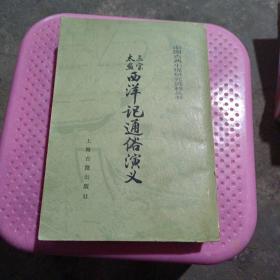 中国古典小说研究资料丛书
三宝太监
西洋记通俗演义
上海古籍出版社